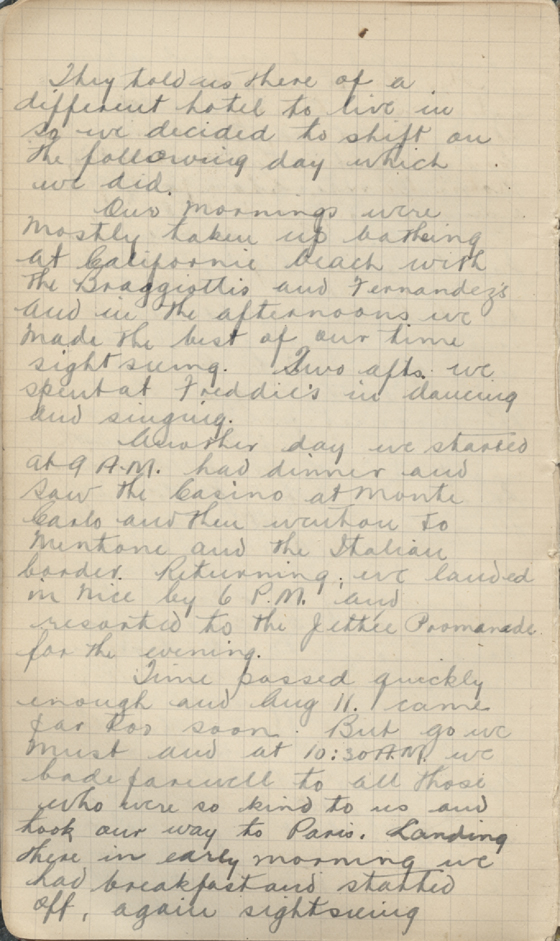 They told us there of a
different hotel to live in
so we decided to shift on
the following day which
we did.
Our mornings were
mostly taken up bathing
at Californie beach with
the Braggiottis and Fernandez's
and in the afternoons we
made the best of our time
sightseeing. Two afts. we
spent at Freddie's in dancing
and singing.
Another day we started
at 9 A.M. had dinner and
saw the Casino at Monte
Carlo and then went on to
Mentone and the Italian
border. Returning, we landed
in Nice by 6 P.M. and
resorted to the Jettie Promanade
for the evening.
Time passed quickly
enough and Aug 11. came
far too soon. But go we
must and at 10:30 A.M. we
bade farewell to all those
who were so kind to us and
took our way to Paris. Landing
there in early morning we
had breakfast and started
off, again sightseeing